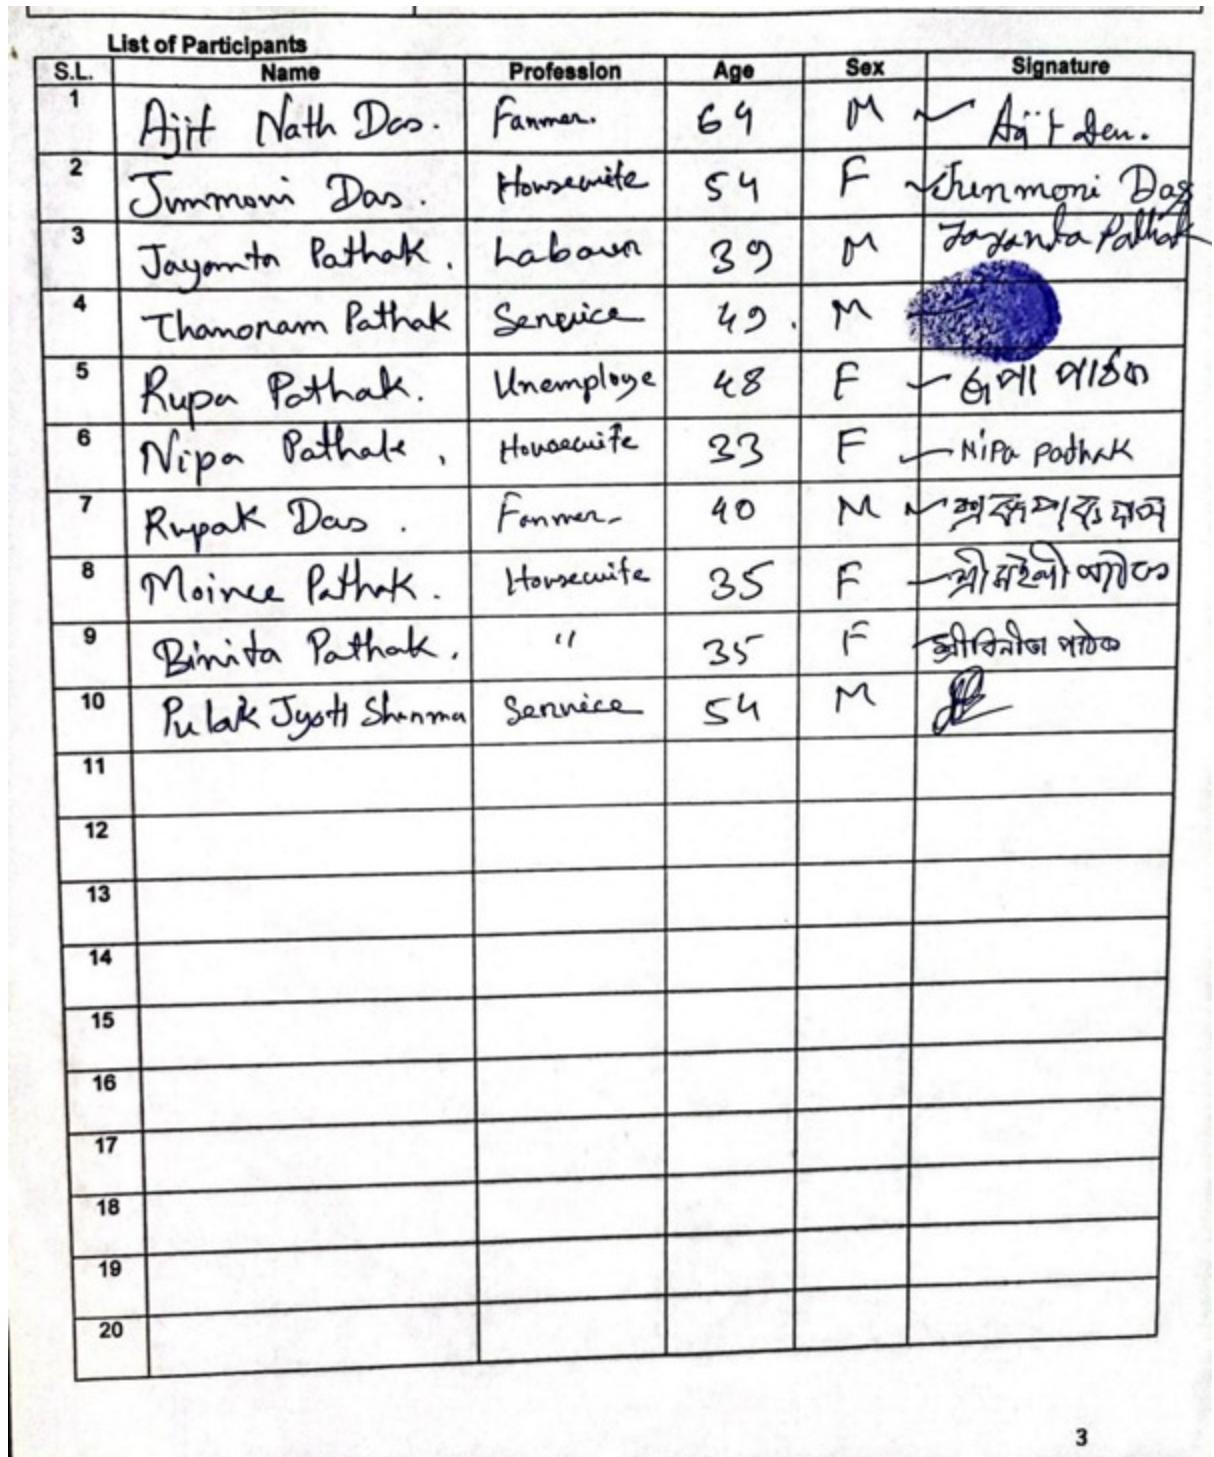 List of Participants
S.L. Name Profession Age Sex Signature
1 Ajit Nath Das. Farmer. 64 M
2 Junmoni Das. Housewife 54 F Junmoni Das
3 Jayanta Pathak. Labour 39 M Jayanta Pathak
4 Pathak Service 49. M
5 Rupa Pathak. Unemploye 48 F ৰুপা পাঠক
6 Nipa Pathak, Housewife 33 F Nipa pathak
7 Rupak Das. Farmer- 40 M
8 Moinee Pathak. Housewife 35 F
9 Binita Pathak. " 35 F শ্ৰীবিনীতা পাঠক
10 Pulak Jyoti Sharma Service 54 M
11
12
13
14
15
16
17
18
19
20
3